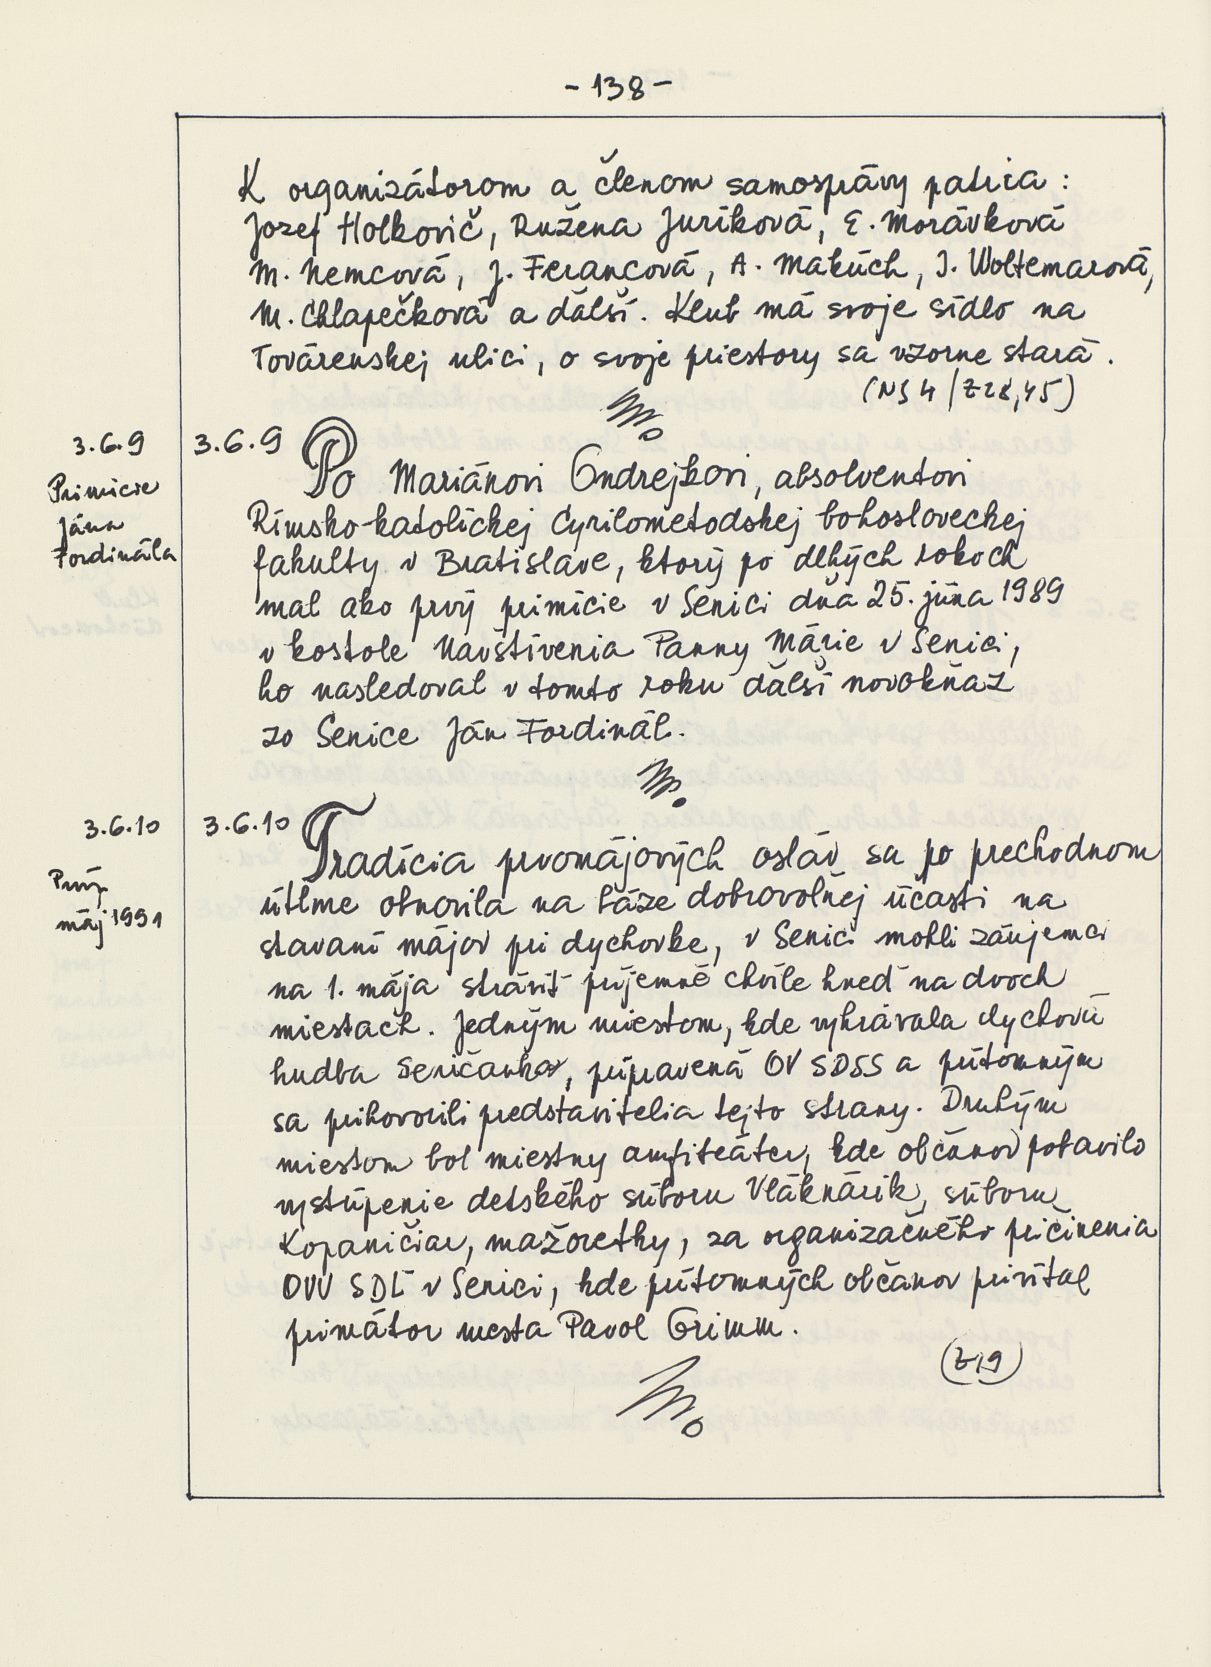 - 138 -
K organizátorom a členom samosprávy patria :
Jozef Holkovič, Ružena Juríková, E. Morávková
M. Nemcová, J. Ferancová, A. Makúch, J. Woltemarová,
M. Chlapečková a ďalší. Klub má svoje sídlo na
Továrenskej ulici, o svoje priestory sa vzorne stará.
(NS 4 / Z 28, 45)
3.6.9
Primície
Jána
Fordinála
3.6.9 Po Mariánovi Ondrejkovi, absolventovi
Rímsko-katolíckej Cyrilometodskej bohosloveckej
fakulty v Bratislave, ktorý po dlhých rokoch
mal ako prvý primície v Senici dňa 25. júna 1989
v kostole Navštívenia Panny Márie v Senici,
ho nasledoval v tomto roku ďalší novokňaz
zo Senice Ján Fordinál.
3.6.10
Prvý
máj 1991
3.6.10 Tradícia prvomájových osláv sa po prechodnom
útlme obnovila na báze dobrovoľnej účasti na
stavaní májov pri dychovke, v Senici mohli záujemci
na 1. mája stráviť príjemné chvíle hneď na dvoch
miestach. Jedným miestom, kde vyhrávala dychová
hudba Seničanka, pripravená OV SDSS a prítomným
sa prihovorili predstavitelia tejto strany. Druhým
miestom bol miestny amfiteáter, kde občanov pobavilo
vystúpenie detského súboru Vláknárik, súboru
Kopaničiar, mažoretky, za organizačného pričinenia
OVV SDĽ v Senici, kde prítomných občanov privítal
primátor mesta Pavol Grimm.
(Z 19)